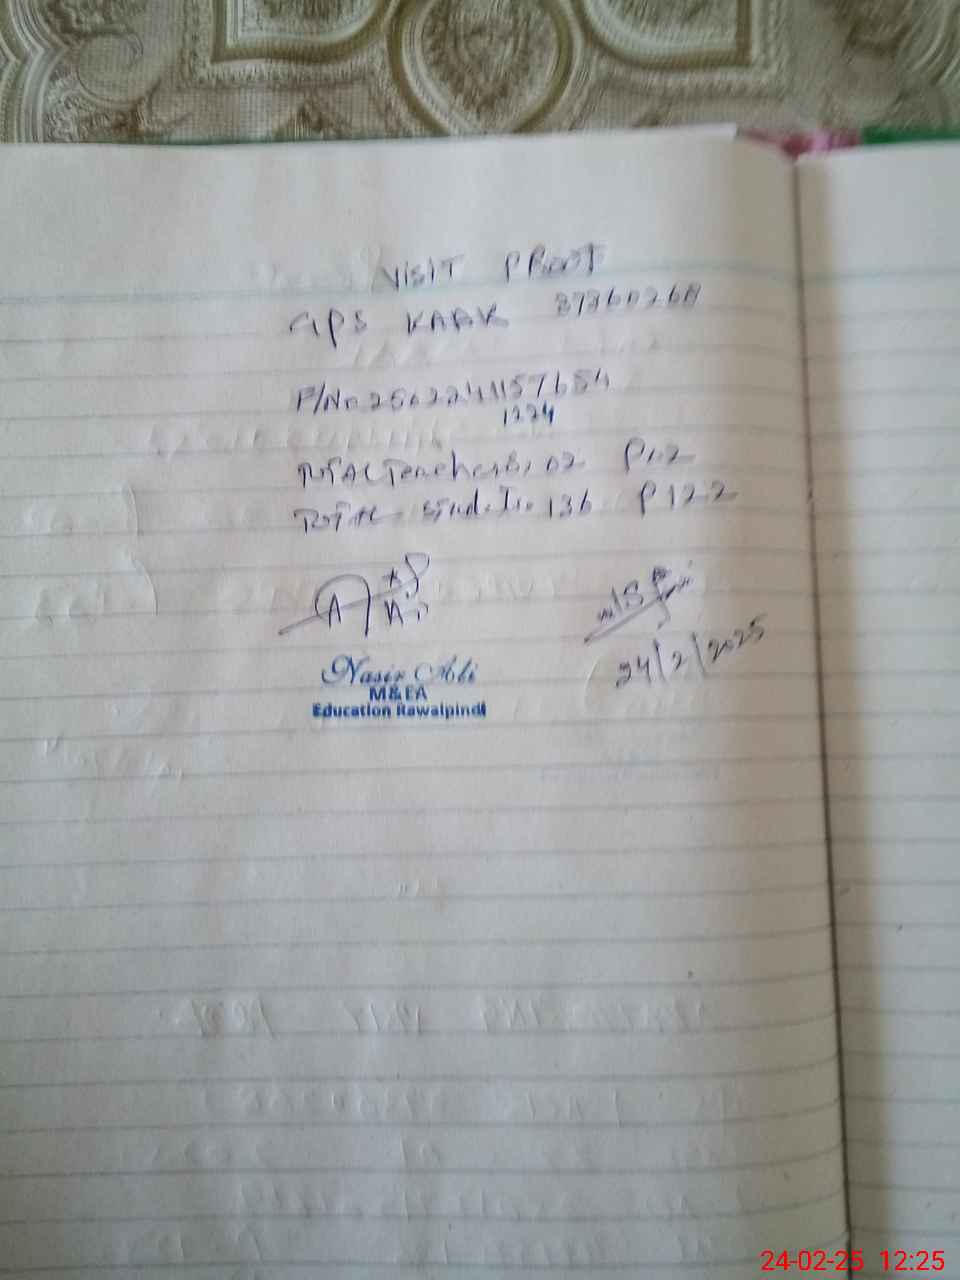 VISIT PROOF
GPS KARK 37360268
F/No 2502241157654
1224
TOTAL Teachers, 02 P 02
TOTAL Students 136 P 122
24/2/2025
Nasir Ali
M&EA
Education Rawalpindi
24-02-25 12:25